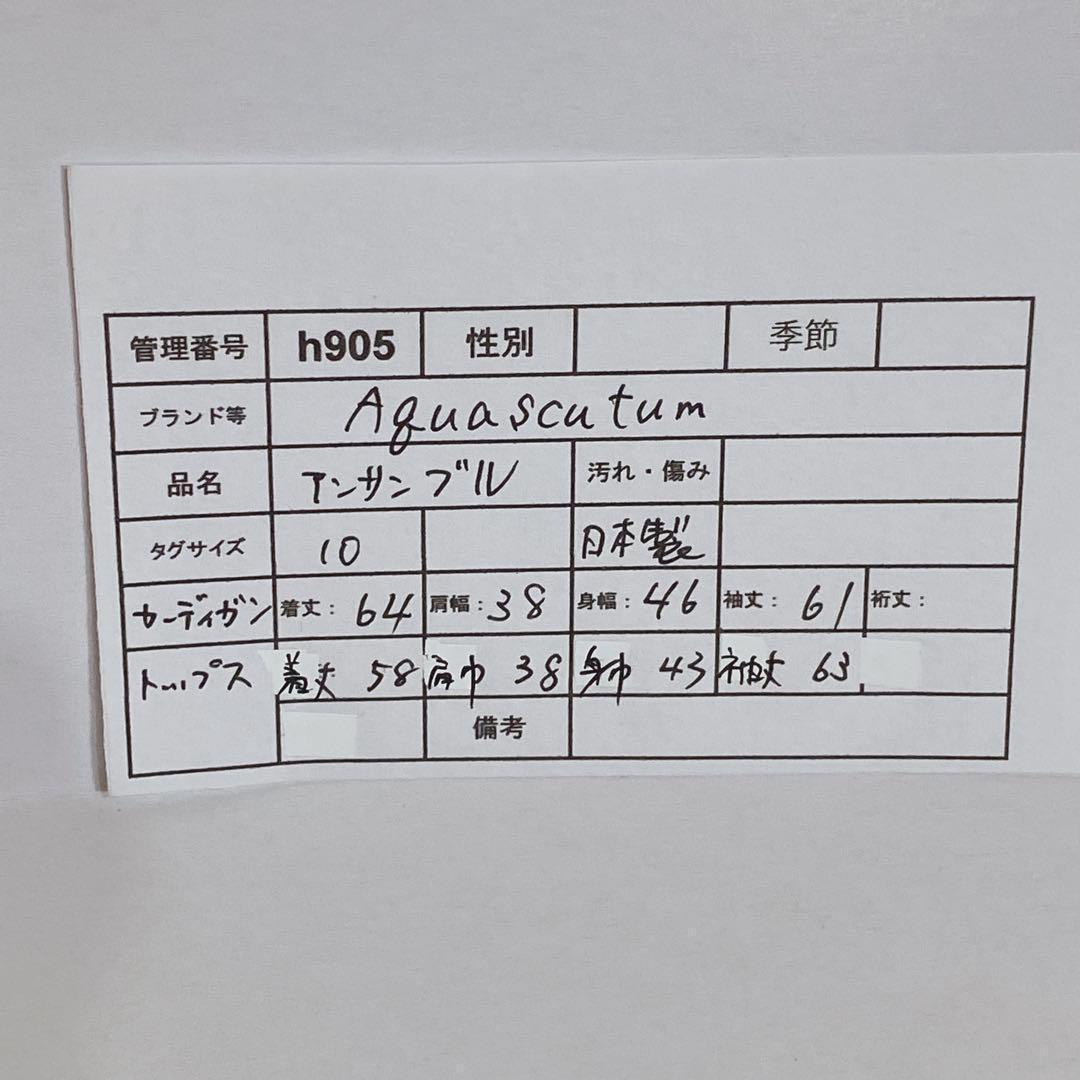 管理番号 h905 性別 季節
ブランド等 Aquascutum
品名 アンサンブル 汚れ・傷み
タグサイズ 10 日本製
カーディガン 着丈: 64 肩幅: 38 身幅: 46 袖丈: 61 裄丈:
トップス 着丈 58 肩巾 38 身巾 43 袖丈 63
備考